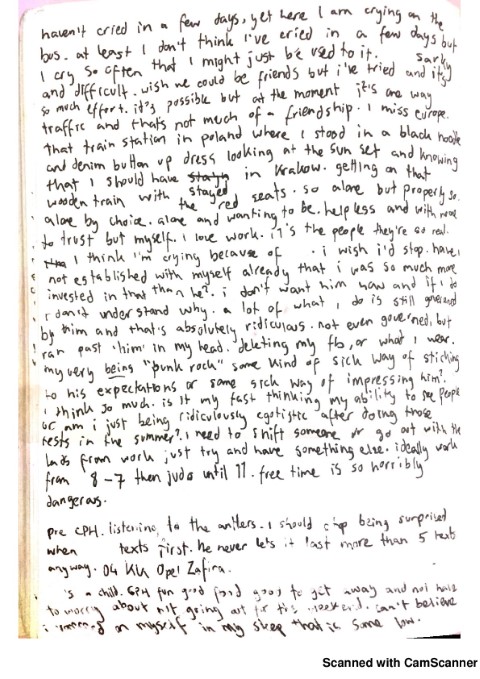 haven't cried in a few days, yet here I am crying on the
bus. at least I don't think I've cried in a few days but
I cry so often that I might just be used to it. sarky
and difficult. wish we could be friends but i've tried and it's
so much effort. it's possible but at the moment it's one way
traffic and thats not much of a friendship. I miss europe.
that train station in poland where I stood in a black hoodie
and denim button up dress looking at the sun set and knowing
that I should have stayed in Krakow. getting on that
wooden train with the red seats. so alone but properly so.
alone by choice. alone and wanting to be. helpless and with none
to trust but myself. I love work. it's the people they're so real.
I think I'm crying because of . i wish i'd stop. have I
not established with myself already that i was so much more
invested in that than he? i don't want him now and if i do
I don't understand why. a lot of what I do is still governed
by him and that's absolutely ridiculous. not even governed, but
ran past 'him' in my head. deleting my fb, or what I wear.
my very being "punk rock" some kind of sick way of sticking
to his expectations or some sick way of impressing him?
I think so much. is it my fast thinking my ability to see people
or am i just being ridiculously egotistic after doing those
tests in the summer? I need to shift someone or go out with the
lads from work just try and have something else. ideally work
from 8-7 then judo until 11. free time is so horribly
dangerous.
pre CPH. listening to the antlers. I should stop being surprised
when texts first. he never lets it last more than 5 texts
anyway. 04 KK Opel Zafira.
's a child. CPH fun good food good to get away and not have
to worry about not going out for the weekend. can't believe
i on myself in my sleep that is some low.
Scanned with CamScanner